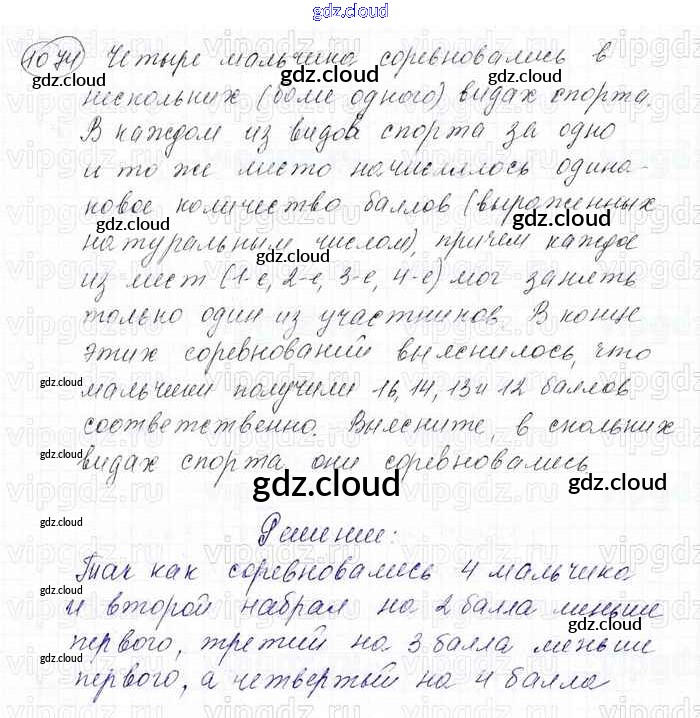 gdz.cloud
1074 Четыре мальчика соревновались в
нескольких (более одного) видах спорта.
В каждом из видов спорта за одно
и то же место начислялось одина-
ковое количество баллов (выраженных
натуральным числом), причём каждое
из мест (1-е, 2-е, 3-е, 4-е) мог занять
только один из участников. В конце
этих соревнований выяснилось, что
мальчики получили 16, 14, 13 и 12 баллов
соответственно. Выясните, в скольких
видах спорта они соревновались
gdz.cloud
Решение:
Так как соревновались 4 мальчика
и второй набрал на 2 балла меньше
первого, третий на 3 балла меньше
первого, а четвертый на 4 балла
gdz.cloud